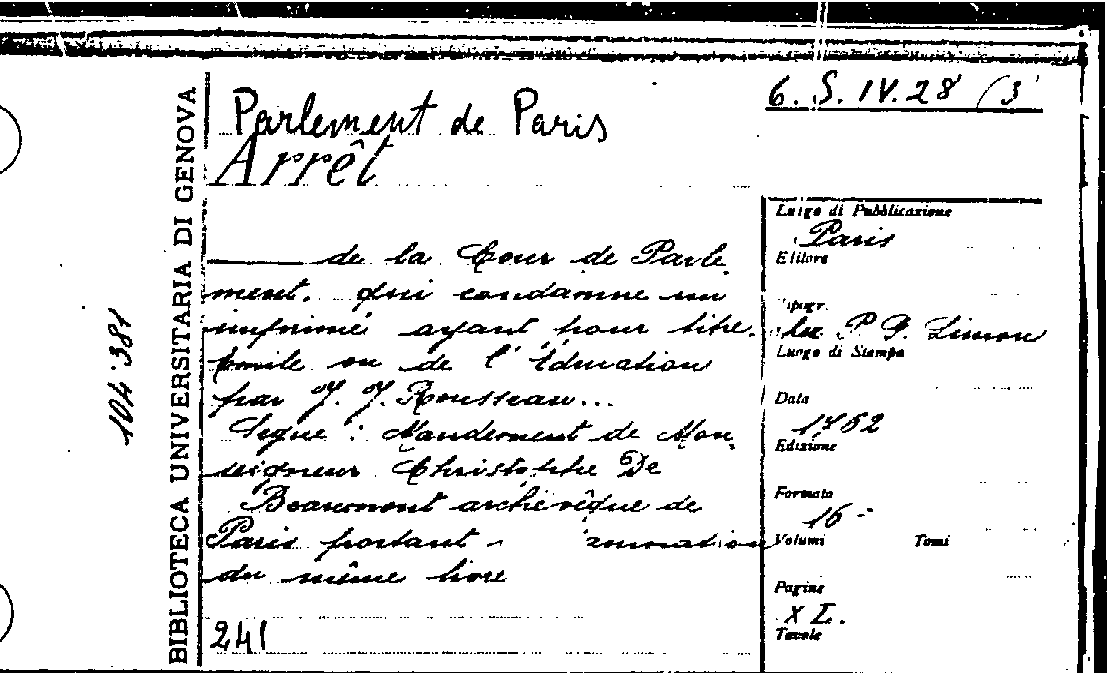 6. S. IV. 28 (3
Parlement de Paris
Arrêt
de la Cour de Parle
ment. qui condamne un
imprimé ayant pour titre.
Emile ou de l'Éducation
par J. J. Rousseau...
Segue : Mandement de Mon
seigneur Christophe De
Beaumont archevêque de
Paris portant
du même livre
241
Luogo di Pubblicazione
Paris
Editore
Tipogr.
P. G. Simon
Luogo di Stampa
Data
1762
Edizione
Formato
16°
Volumi Tomi
Pagine
XL.
Tavole
BIBLIOTECA UNIVERSITARIA DI GENOVA
104381